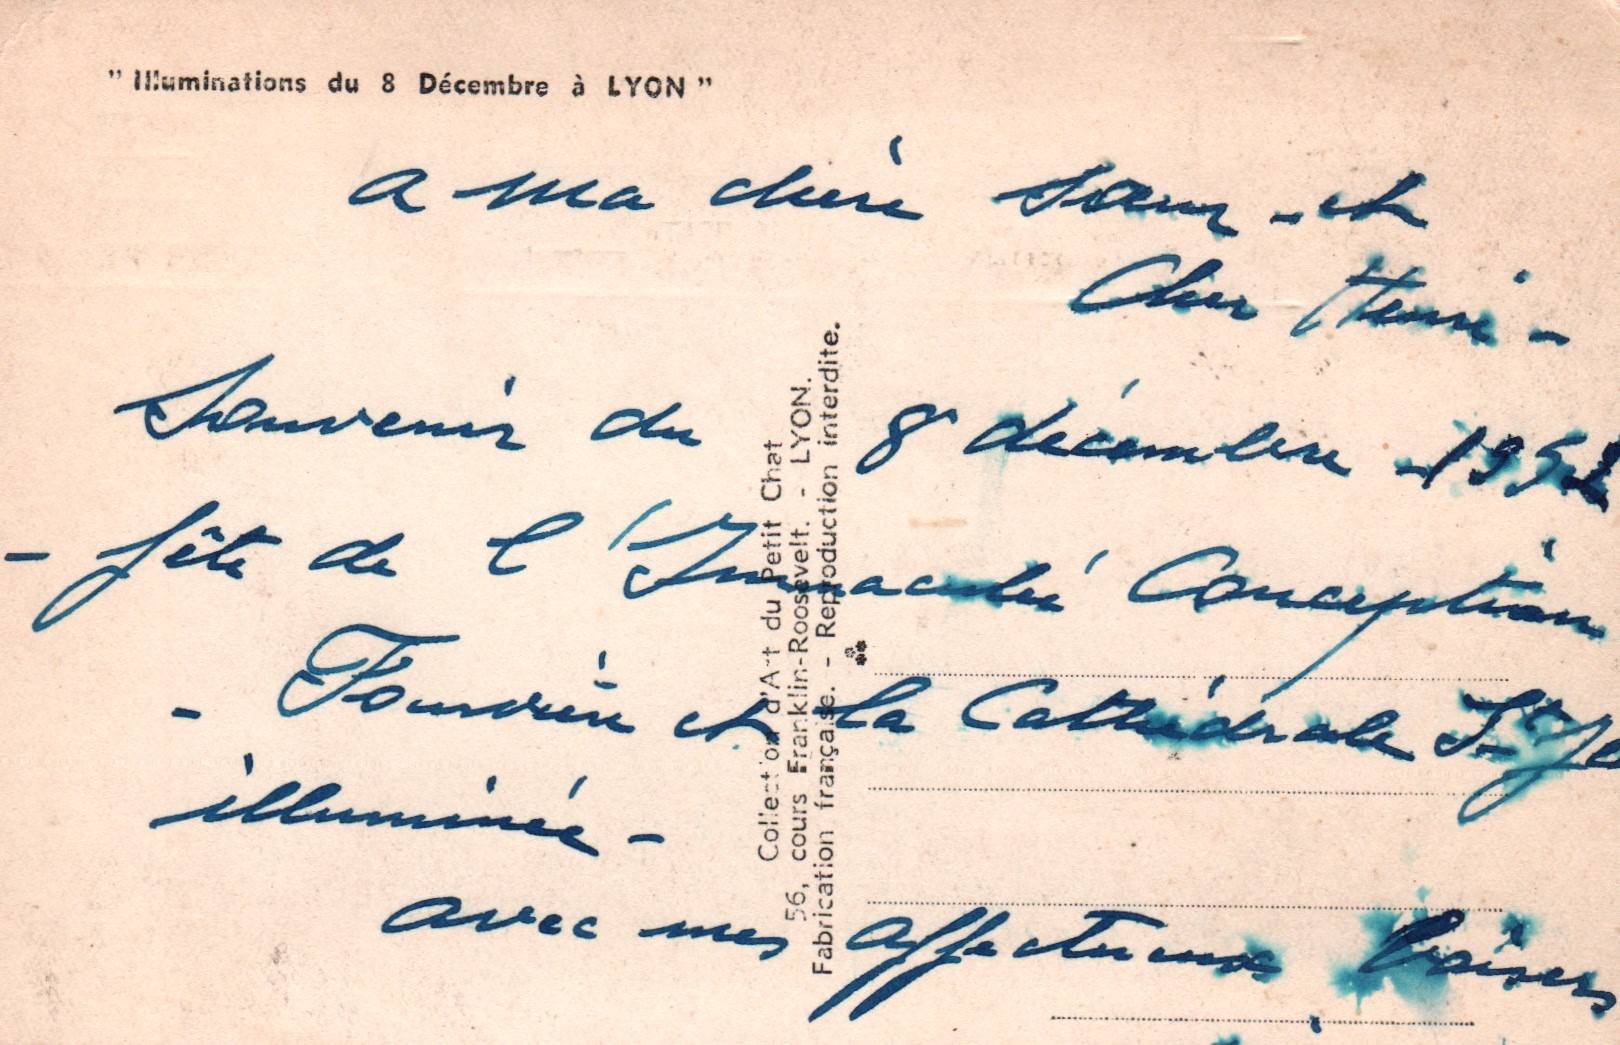 " Illuminations du 8 Décembre à LYON "
a ma chère sœur - et
Cher Henri -
Souvenir du 8 décembre 195
- fête de l'Immaculée Conception
- Fourvière et la Cathédrale St Je
illuminée -
avec mes affectueux baisers
Collection d'Art du Petit Chat
56, cours Franklin-Roosevelt. - LYON.
Fabrication française. - Reproduction interdite.